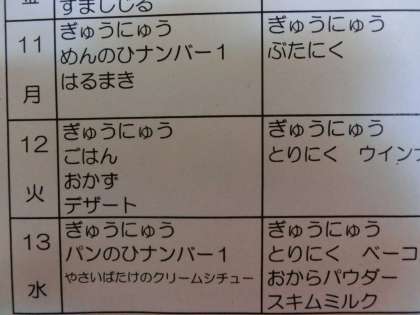 すましじる
11
月
ぎゅうにゅう
めんのひナンバー1
はるまき
ぎゅうにゅう
ぶたにく
12
火
ぎゅうにゅう
ごはん
おかず
デザート
ぎゅうにゅう
とりにく ウイン
13
水
ぎゅうにゅう
パンのひナンバー1
やさいばたけのクリームシチュー
ぎゅうにゅう
とりにく ベーコ
おからパウダー
スキムミルク